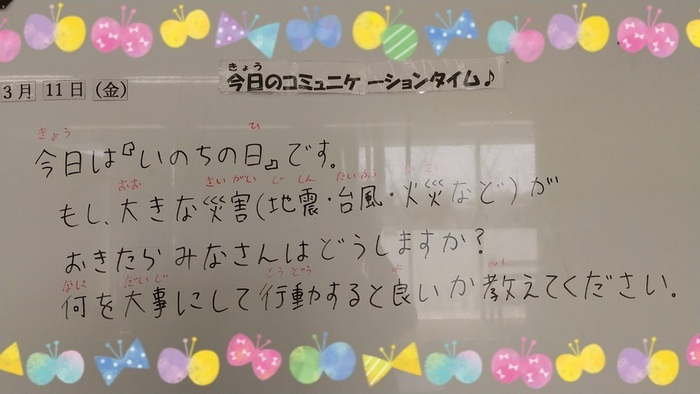 きょう
今日のコミュニケーションタイム♪
3月 11日 (金)
きょう ひ
今日は『いのちの日』です。
おお さいがい じ しん たいふう か さい
もし、大きな災害(地震・台風・火災など)が
おきたら みなさんはどうしますか?
なに だいじ こうどう よ おし
何を大事にして行動すると良いか教えてください。